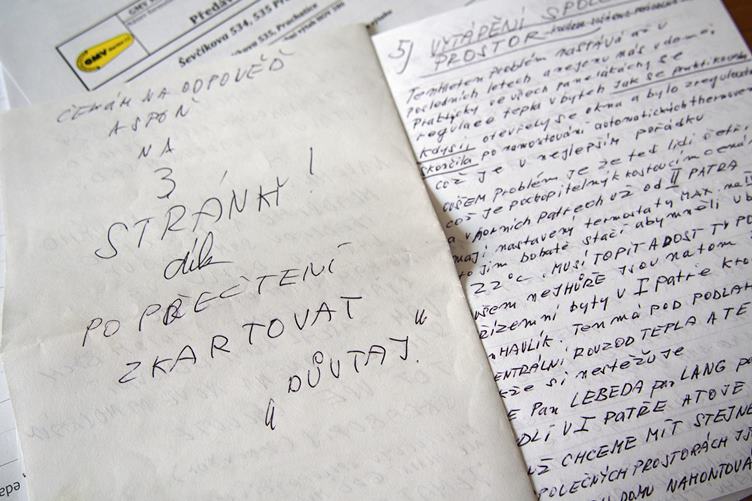 GMV
Předáv
Ševčíkova 534, 535
Prachatice
ČEKÁM NA ODPOVĚĎ
ASPOŇ
NA
3
STRÁNKY!
dík
PO PŘEČTENÍ
ZKARTOVAT
„DŮVTAJ."
5) VYTÁPĚNÍ SPOLE
PROSTOR
Tenhleten problém nastává až v
posledních letech a nejenu nás v domě,
Prakticky ve všech panelákách se
regulace tepla v bytech jak se praktikovala
kdysi otevřely se okna a bylo zregulo
skončila po namontování automatických thermove
což je v nejlepším pořádku
OVŠEM problém je že teď lidi šetří
což je pochopitelný k rostoucím cenám
a v horních patrech už od II PATRA
mají nastaveny termostaty MAX na
to jim bohatě stačí aby měli v b
22°C. MUSÍ TOPIT A DOST TY PO
všem NEJHŮŘE JSOU na tom
řízemní byty v I patře kro
HAVLÍK. Ten má POD PODLAH
ENTRÁLNÍ ROZVOD TEPLA A TE
kže si nestěžuje
E Pan LEBEDA pan LANG pa
DLÍ V I PATŘE A TO JE
UŽ CHCEME MÍT STEJNĚ
POLEČNÝCH PROSTORÁCH JS
DOMU NAMONTOVA
eda